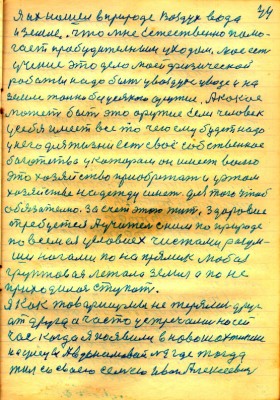 44
Я их нашел в природе воздух вода
и земле. что мне естественно помо-
гает пробудительным уходом, мое сет
учение это дело моей физической
работы надо быть у воздухе у воде и на
земле только без всякого оружие, А какое
может быть это оружие если человек
у себя имеет все то чего ему будет надо
у него для жизни есть своё собственное
богатства у котором он имеет всего
Это хозяйство приобретает и у этом
хозяйстве надежду имеет для того чтоб
обязательно. За счет этого жить. Здоровие
требуется Научится с ним по природе
по всем на условиях чистыми, разум-
ными ногами по на прямик любая
грунтовая летом земля а по не
приходилось ступат.
Я как товарищ мы не теряли друг
от друга и часто устречались на сей
час когда я появили в новошахтинске
на улице Авдокимовай №2 где тогда
жил со своего семьею Иван Алексеевич